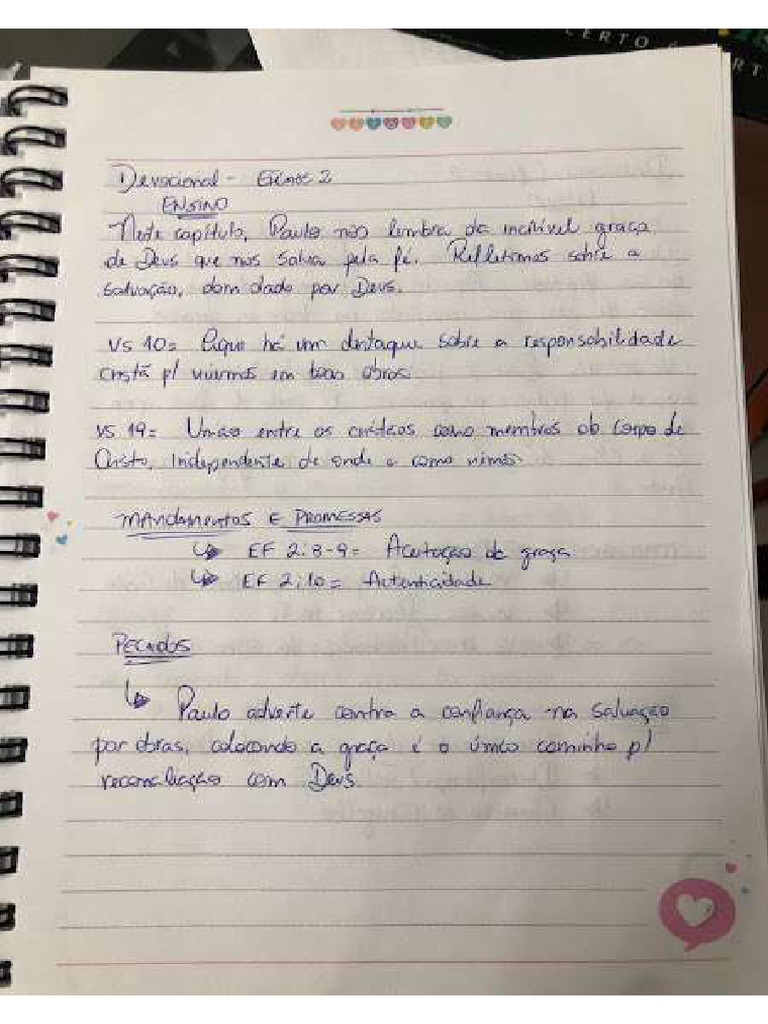 CERTO
ART
Devocional - Efésios 2
ENSINO
Neste capítulo, Paulo nos lembra da incrível graça
de Deus que nos salva pela fé. Refletimos sobre a
salvação, dom dado por Deus.
VS 10= Aqui há um destaque sobre a responsabilidade
cristã p/ vivermos em boas obras
VS 19= União entre os cristãos como membros do Corpo de
Cristo, Independente de onde e como vimos
MANdAmENtOS E PROMESSAS
↳ EF 2:8-9= Aceitação da graça
↳ EF 2:10= Autenticidade
PECADOS
↳ Paulo adverte contra a confiança na salvação
por obras, colocando a graça é o único caminho p/
reconciliação com Deus